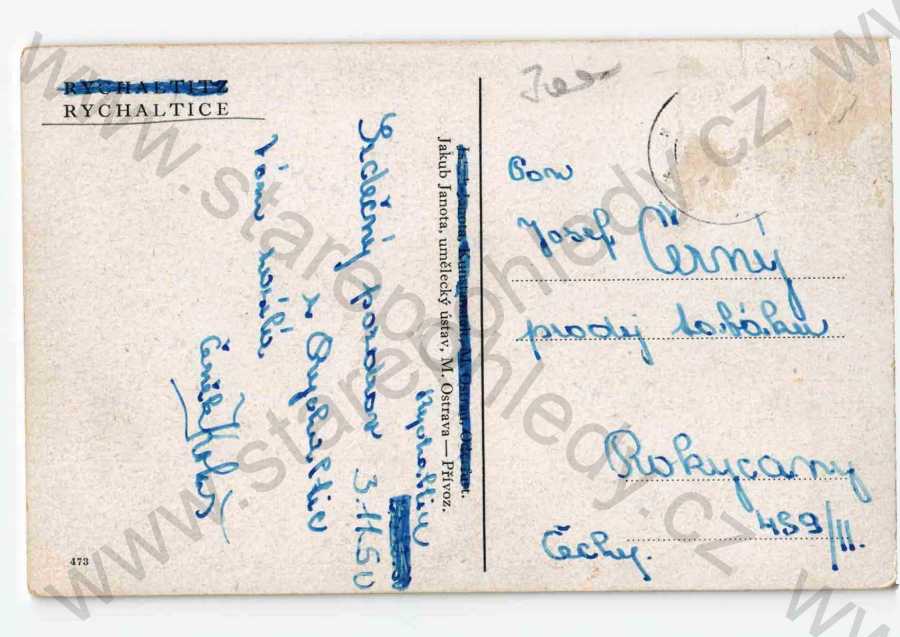 RYCHALTITZ
RYCHALTICE
Rychaltice
3.11.50
Srdečný pozdrav
z Rychaltic
Vám zasílá
Čeněk
Jakub Janota, Kunstanstalt, M. Ostrau, Oderfurt.
Jakub Janota, umělecký ústav, M. Ostrava — Přívoz.
473
Pan
Josef Černý
prodej tabáku
Rokycany
459/II.
Čechy.
www.starepohledy.cz
www.starepohledy.cz